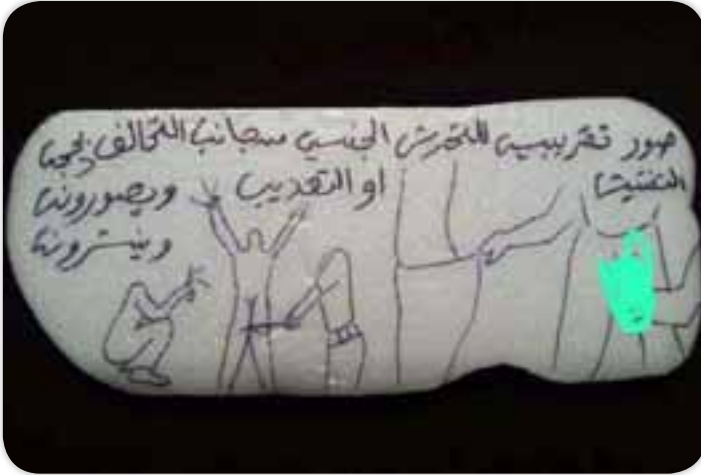 صور تقريبيه للتحرش الجنسي سجانب التحالف بحجة
التفتيش او التعذيب ويصورونه
وينشرونه